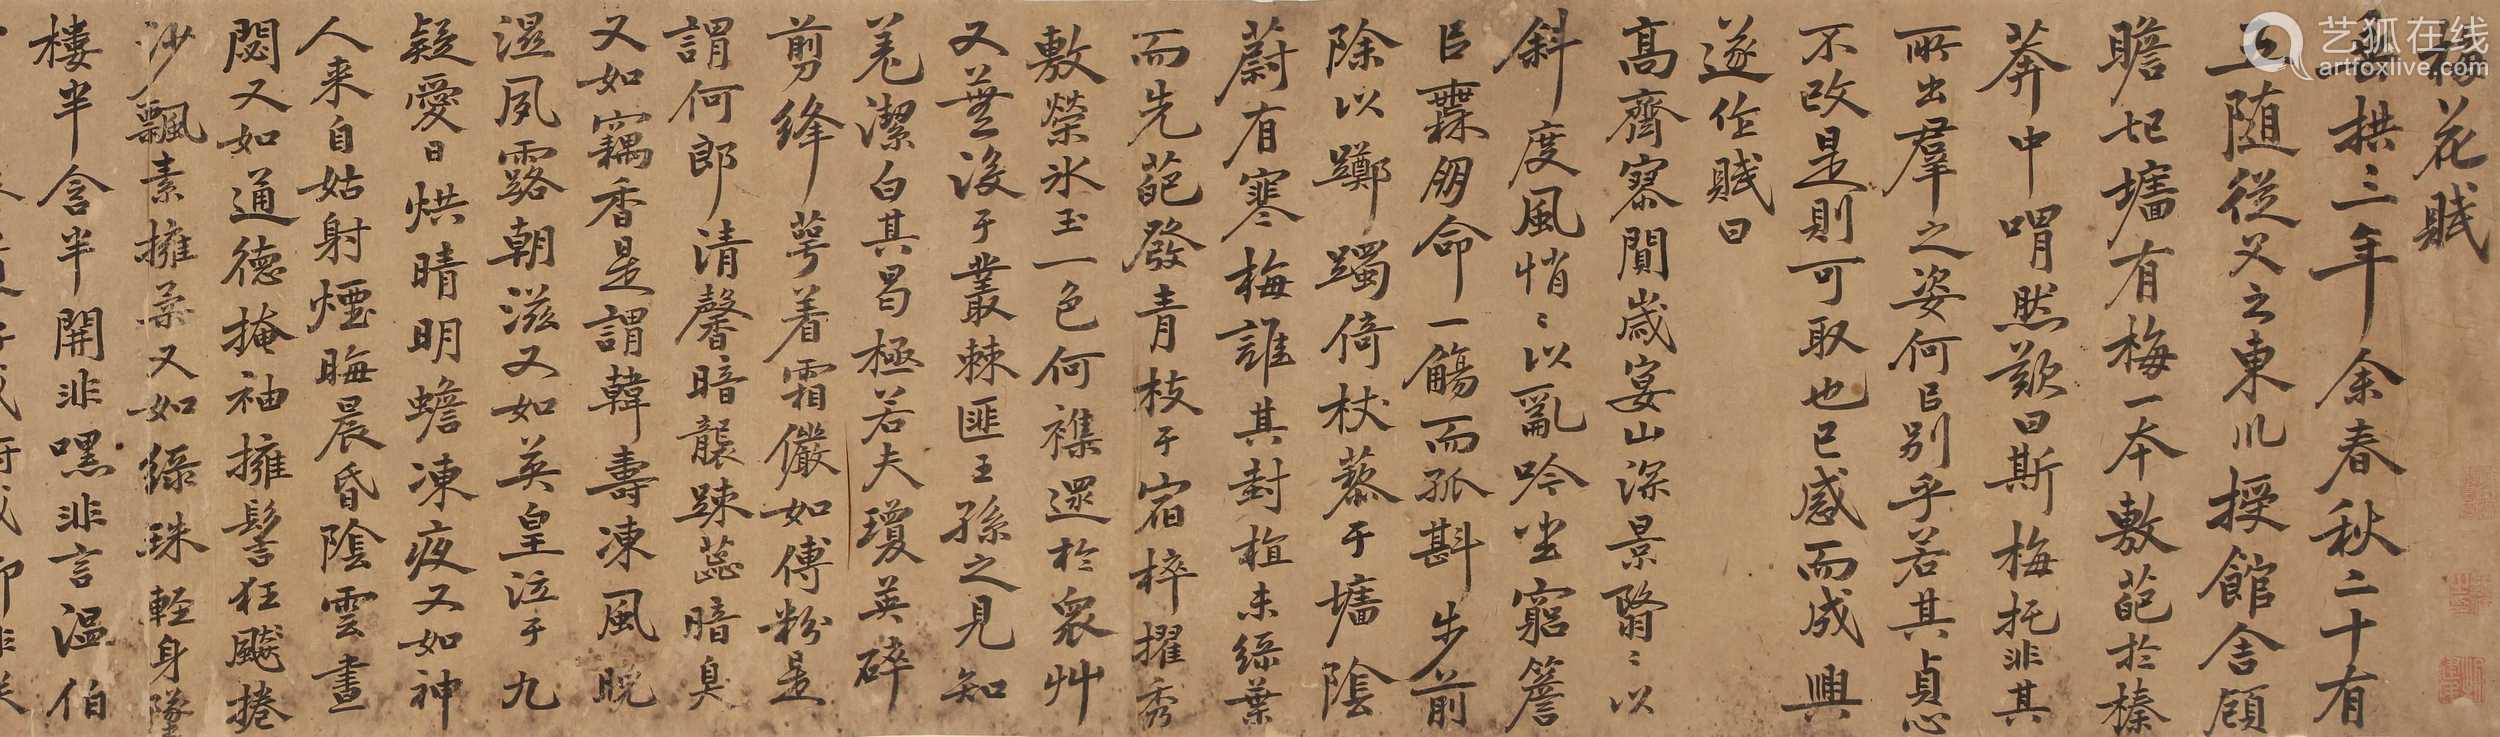 梅花賦
垂拱三年余春秋二十有
五随從父之東川授館舍頋
瞻圮墻有梅一本敷葩於榛
莽中喟然歎曰斯梅托非其
所出羣之姿何㠯别乎若其貞心
不改是則可取也已感而成興
遂作賦曰
高齊寥閴歲宴山深景翳〻以
斜度風悄〻以亂吟坐窮簷
㠯無朋命一觴而孤斟步前
除以躑躅倚杖藜于墻陰
蔚有寒梅誰其封植未緑葉
而先葩發青枝于宿梓擢秀
敷榮冰玉一色何襍遝於衆艸
又蕪没于叢棘匪王孫之見知
羌潔白其曷極若夫瓊英碎
剪絳萼着霜儼如傅粉是
謂何郎清馨暗襲踈蕊暗臭
又如竊香是謂韓壽凍風晚
濕夙露朝滋又如英皇泣于九
疑愛日烘晴明蟾凍夜又如神
人来自姑射煙晦晨昏陰雲晝
閟又如通德掩袖擁髻狂飈捲
沙飄素擁柔又如緑珠輕身墜
樓半含半開非嘿非言温伯
艺狐在线
artfoxlive.com